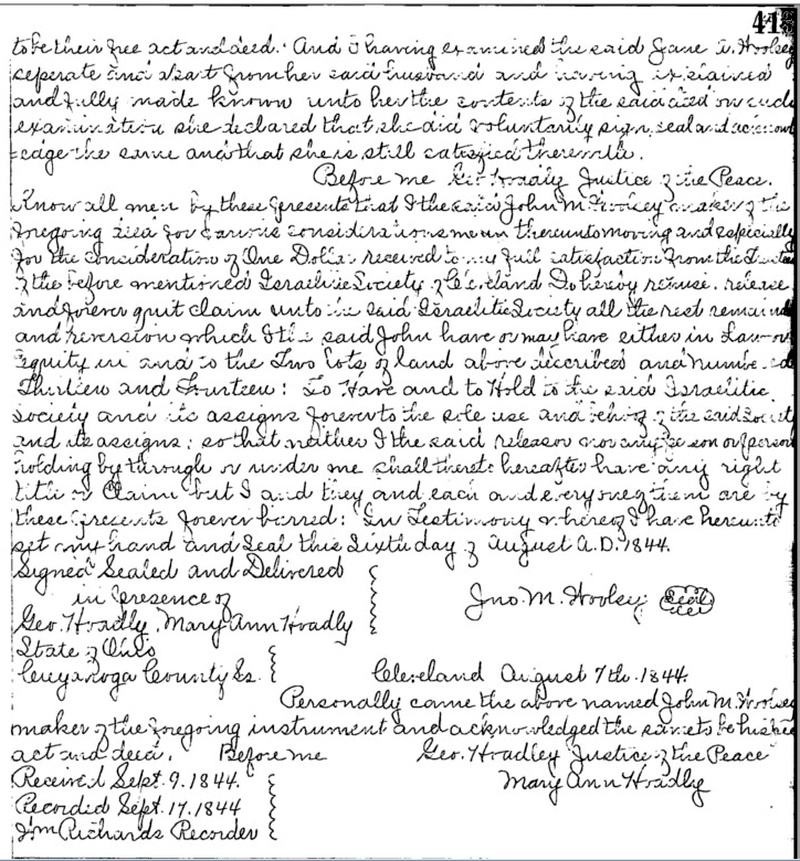 41
to be their free act and deed. And I having examined the said Jane A. Woolsey
seperate and apart from her said husband and having explained
and fully made known unto her the contents of the said deed on such
examination she declared that she did voluntarily sign, seal and acknowl
edge the same and that she is still satisfied therewith.
Before me Geo. Hoadly Justice of the Peace.
Know all men by these presents that I the said John M. Woolsey maker of the
foregoing deed for various considerations me thereunto moving and especially
for the consideration of One Dollar received to my full satisfaction from the
of the before mentioned Israelitic Society of Cleveland Do hereby remise, release
and forever quit claim unto the said Israelitic Society all the rest remain
and reversion which I the said John have or may have either in Law or
equity in and to the Two Lots of land above described and numbered
Thirteen and Fourteen: To Have and to Hold to the said Israelitic
Society and its assigns forever to the sole use and behoof of the said Society
and its assigns; so that neither I the said releasor nor any person or persons
holding by through or under me shall hereafter have any right
title or Claim but I and they and each and everyone of them are by
these presents forever barred: In Testimony whereof I have hereunto
set my hand and Seal this Sixth day of August A.D. 1844.
Signed Sealed and Delivered
in presence of
Jno. M. Woolsey Seal
Geo. Hoadly, Mary Ann Hoadly
State of Ohio
Cuyahoga County Ss. Cleveland August 7th. 1844.
Personally came the above named John M. Woolsey
maker of the foregoing instrument and acknowledged the same to be his free
act and deed. Before me Geo. Hoadley Justice of the Peace
Received Sept. 9. 1844. Mary Ann Hoadly
Recorded Sept. 17. 1844
Jm Richards Recorder